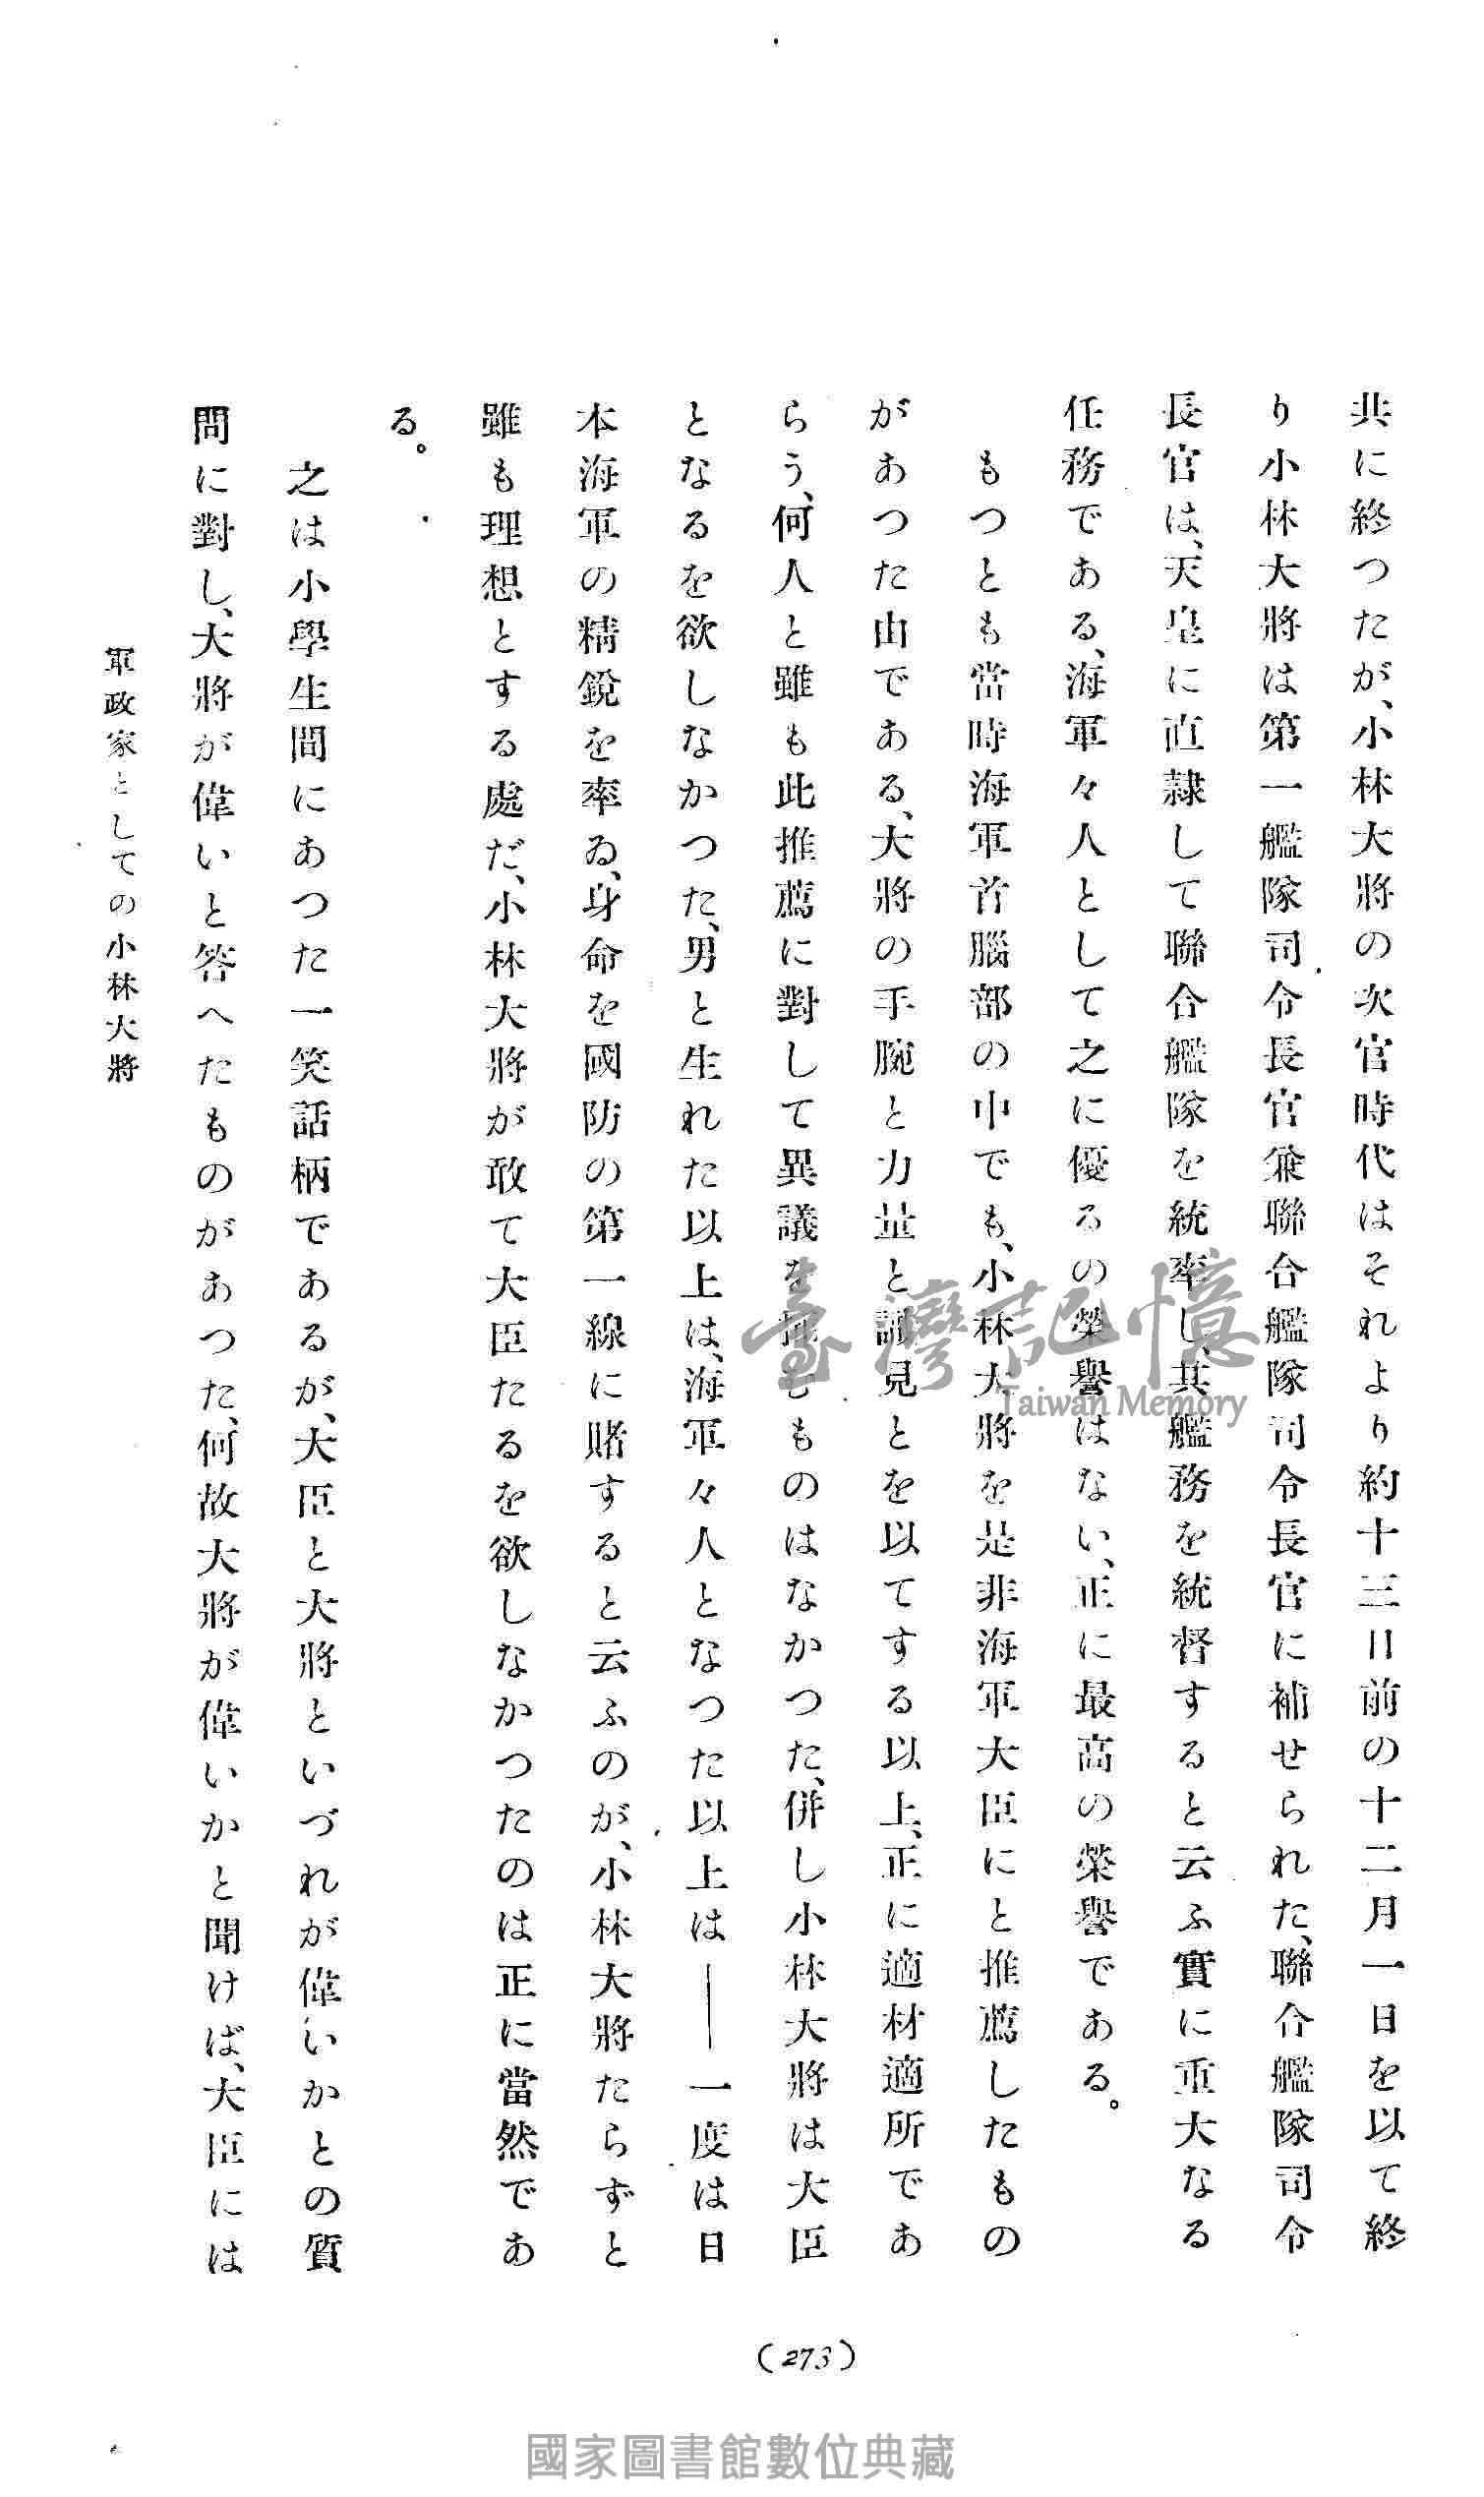 共に終つたが、小林大將の次官時代はそれより約十三日前の十二月一日を以て終
り小林大將は第一艦隊司令長官兼聯合艦隊司令長官に補せられた、聯合艦隊司令
長官は、天皇に直隷して聯合艦隊を統率し、其艦務を統督すると云ふ實に重大なる
任務である、海軍々人として之に優るの榮譽はない、正に最高の榮譽である。
もつとも當時海軍首腦部の中でも、小林大將を是非海軍大臣にと推薦したもの
があつた由である、大將の手腕と力量と識見とを以てする以上、正に適材適所であ
らう、何人と雖も此推薦に對して異議を挾むものはなかつた、併し小林大將は大臣
となるを欲しなかつた、男と生れた以上は、海軍々人となつた以上は――一度は日
本海軍の精銳を率ゐ、身命を國防の第一線に賭すると云ふのが、小林大將たらずと
雖も理想とする處だ、小林大將が敢て大臣たるを欲しなかつたのは正に當然であ
る。
之は小學生間にあつた一笑話柄であるが、大臣と大將といづれが偉いかとの質
問に對し、大將が偉いと答へたものがあつた、何故大將が偉いかと聞けば、大臣には
軍政家としての小林大將
(273)
臺灣記憶
Taiwan Memory
國家圖書館數位典藏